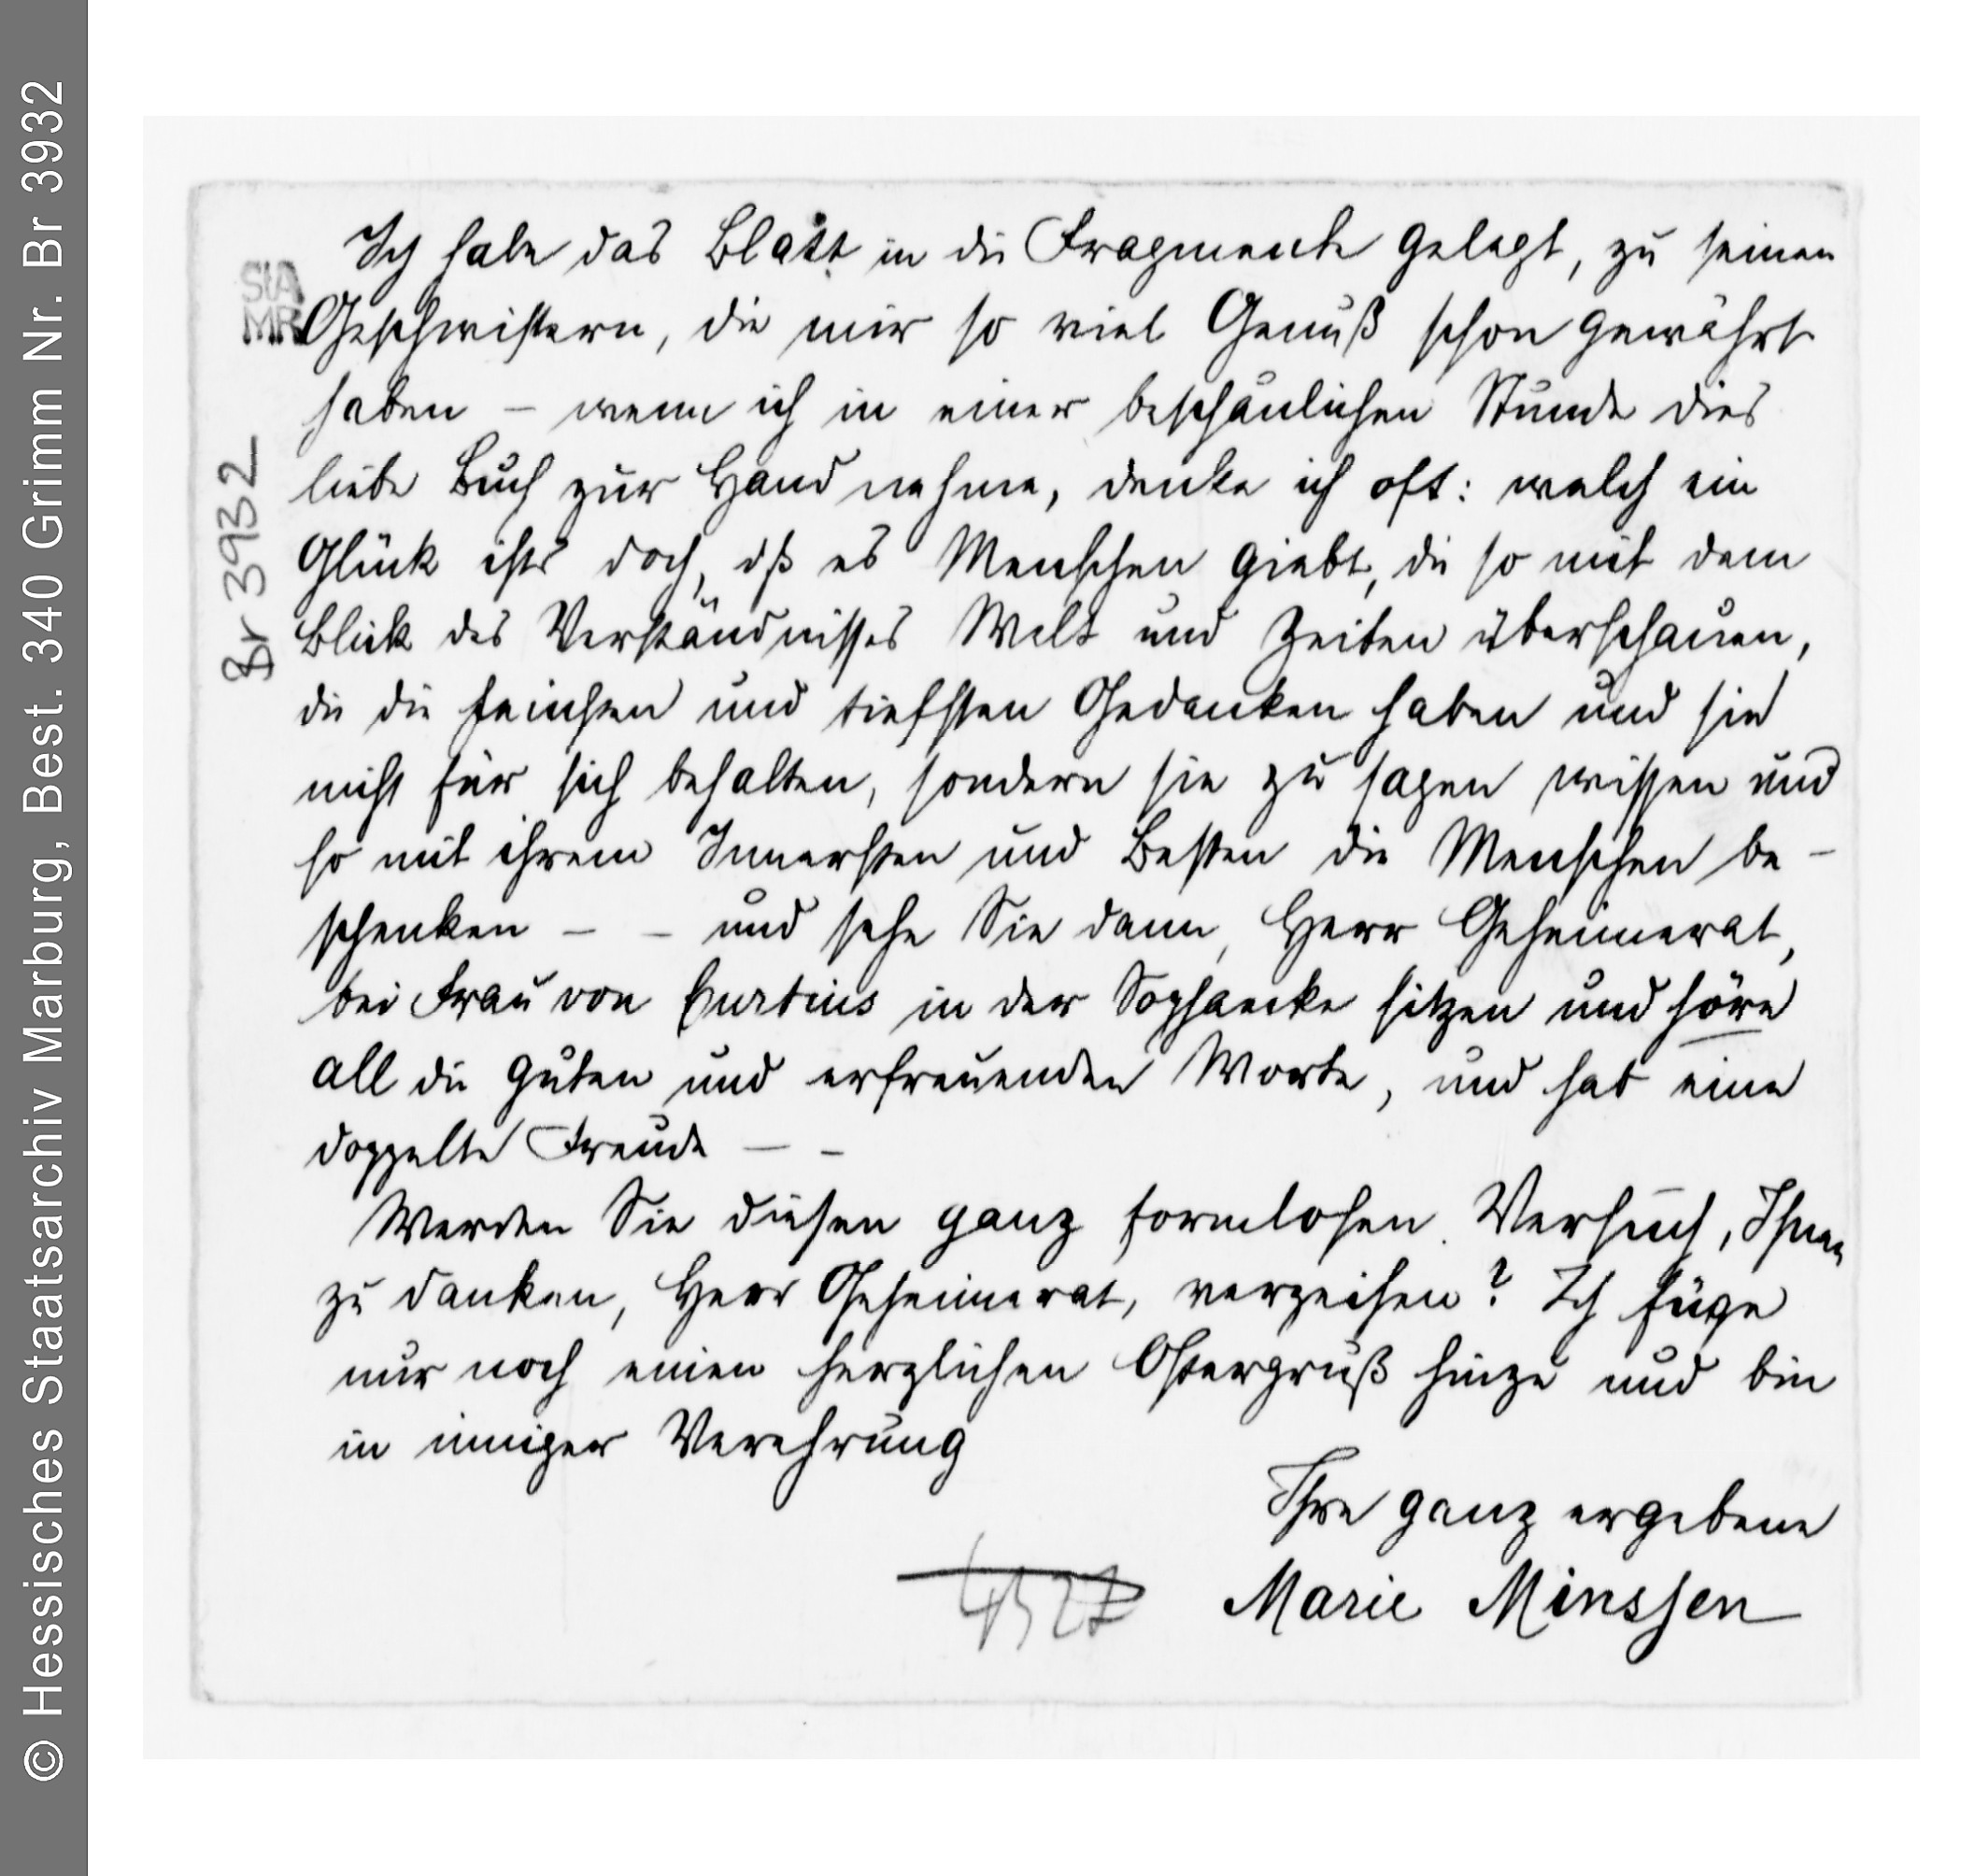 © Hessisches Staatsarchiv Marburg, Best. 340 Grimm Nr. Br 3932
StA
MR
Br 3932
Ich habe das Blatt in die Fragmente gelegt, zu seinen
Geschwistern, die mir so viel Genuß schon gewährt
haben – wenn ich in einer beschaulichen Stunde dies
liebe Buch zur Hand nehme, denke ich oft: welch ein
Glück ists doch, dß es Menschen giebt, die so mit dem
Blick des Verständnisses Welt und Zeiten überschauen,
die die feinsten und tiefsten Gedanken haben und sie
nicht für sich behalten, sondern sie zu sagen wissen und
so mit ihrem Innersten und Besten die Menschen be-
schenken – – und sehe Sie dann, Herr Geheimerat,
bei Frau von Curtius in der Sophaecke sitzen und höre
all die guten und erfreuenden Worte, und hab eine
doppelte Freude – –
Werden Sie diesen ganz formlosen Versuch, Ihnen
zu danken, Herr Geheimerat, verzeihen? Ich füge
nur noch einen herzlichen Ostergruß hinzu und bin
in inniger Verehrung
Ihre ganz ergebene
Marie Minssen